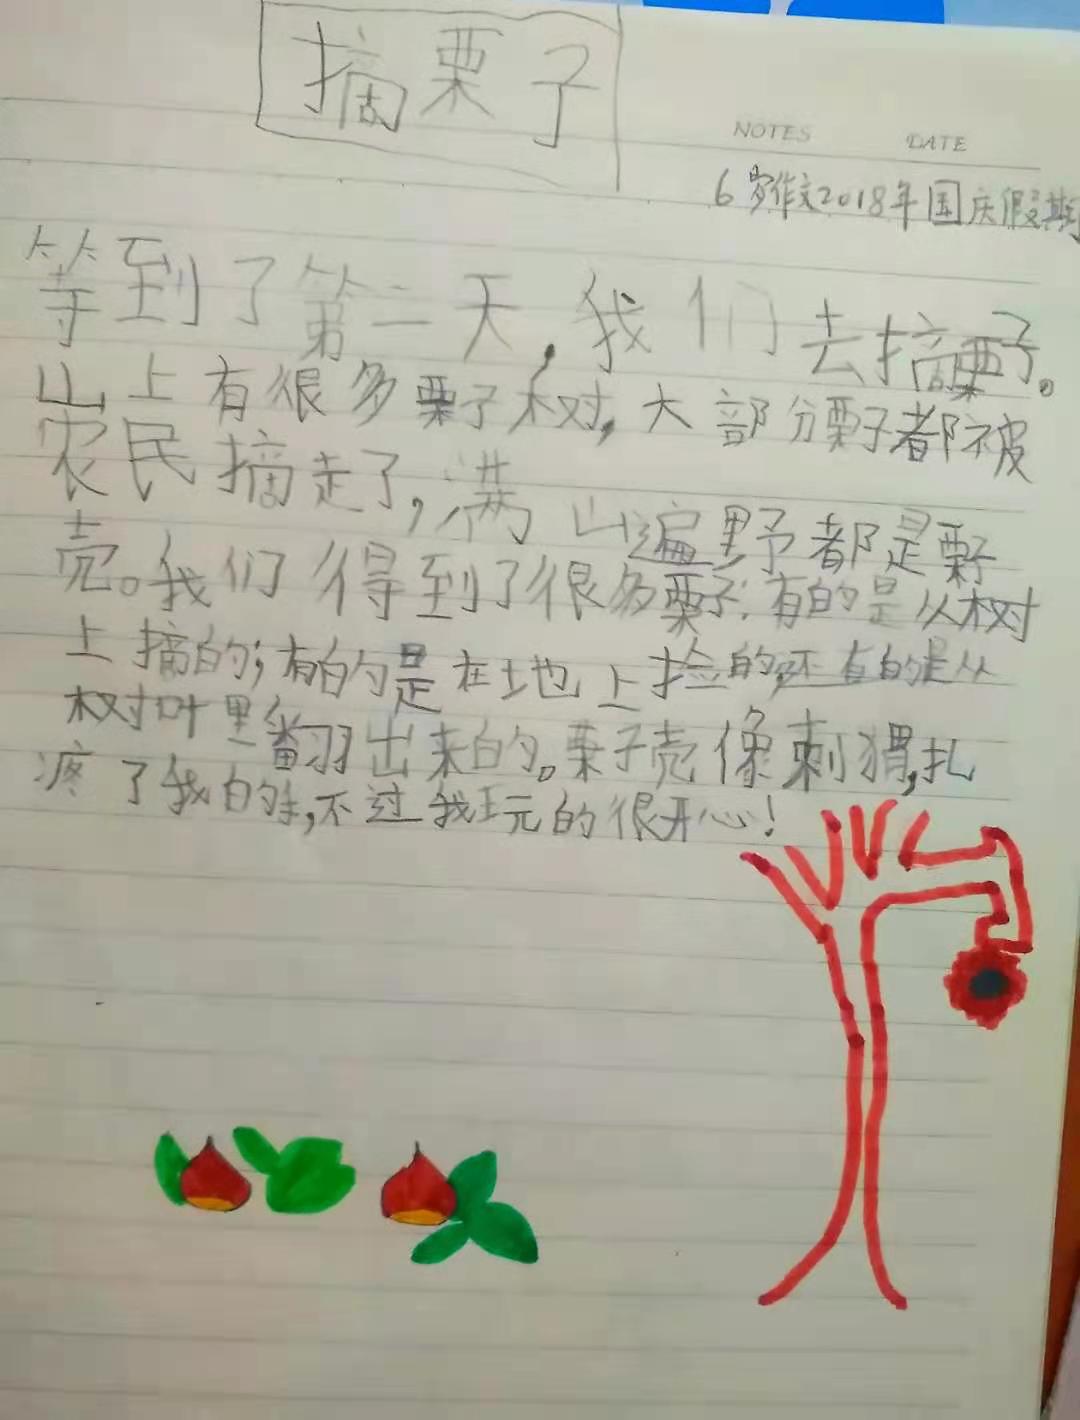 摘栗子
NOTES DATE
6岁作文2018年国庆假期
等到了第二天，我们去摘栗子。
山上有很多栗子树，大部分栗子都被
农民摘走了，满山遍野都是栗子
壳。我们得到了很多栗子：有的是从树
上摘的；有的是在地上捡的；还有的是从
树叶里翻出来的。栗子壳像刺猬，扎
疼了我的手，不过我玩的很开心！